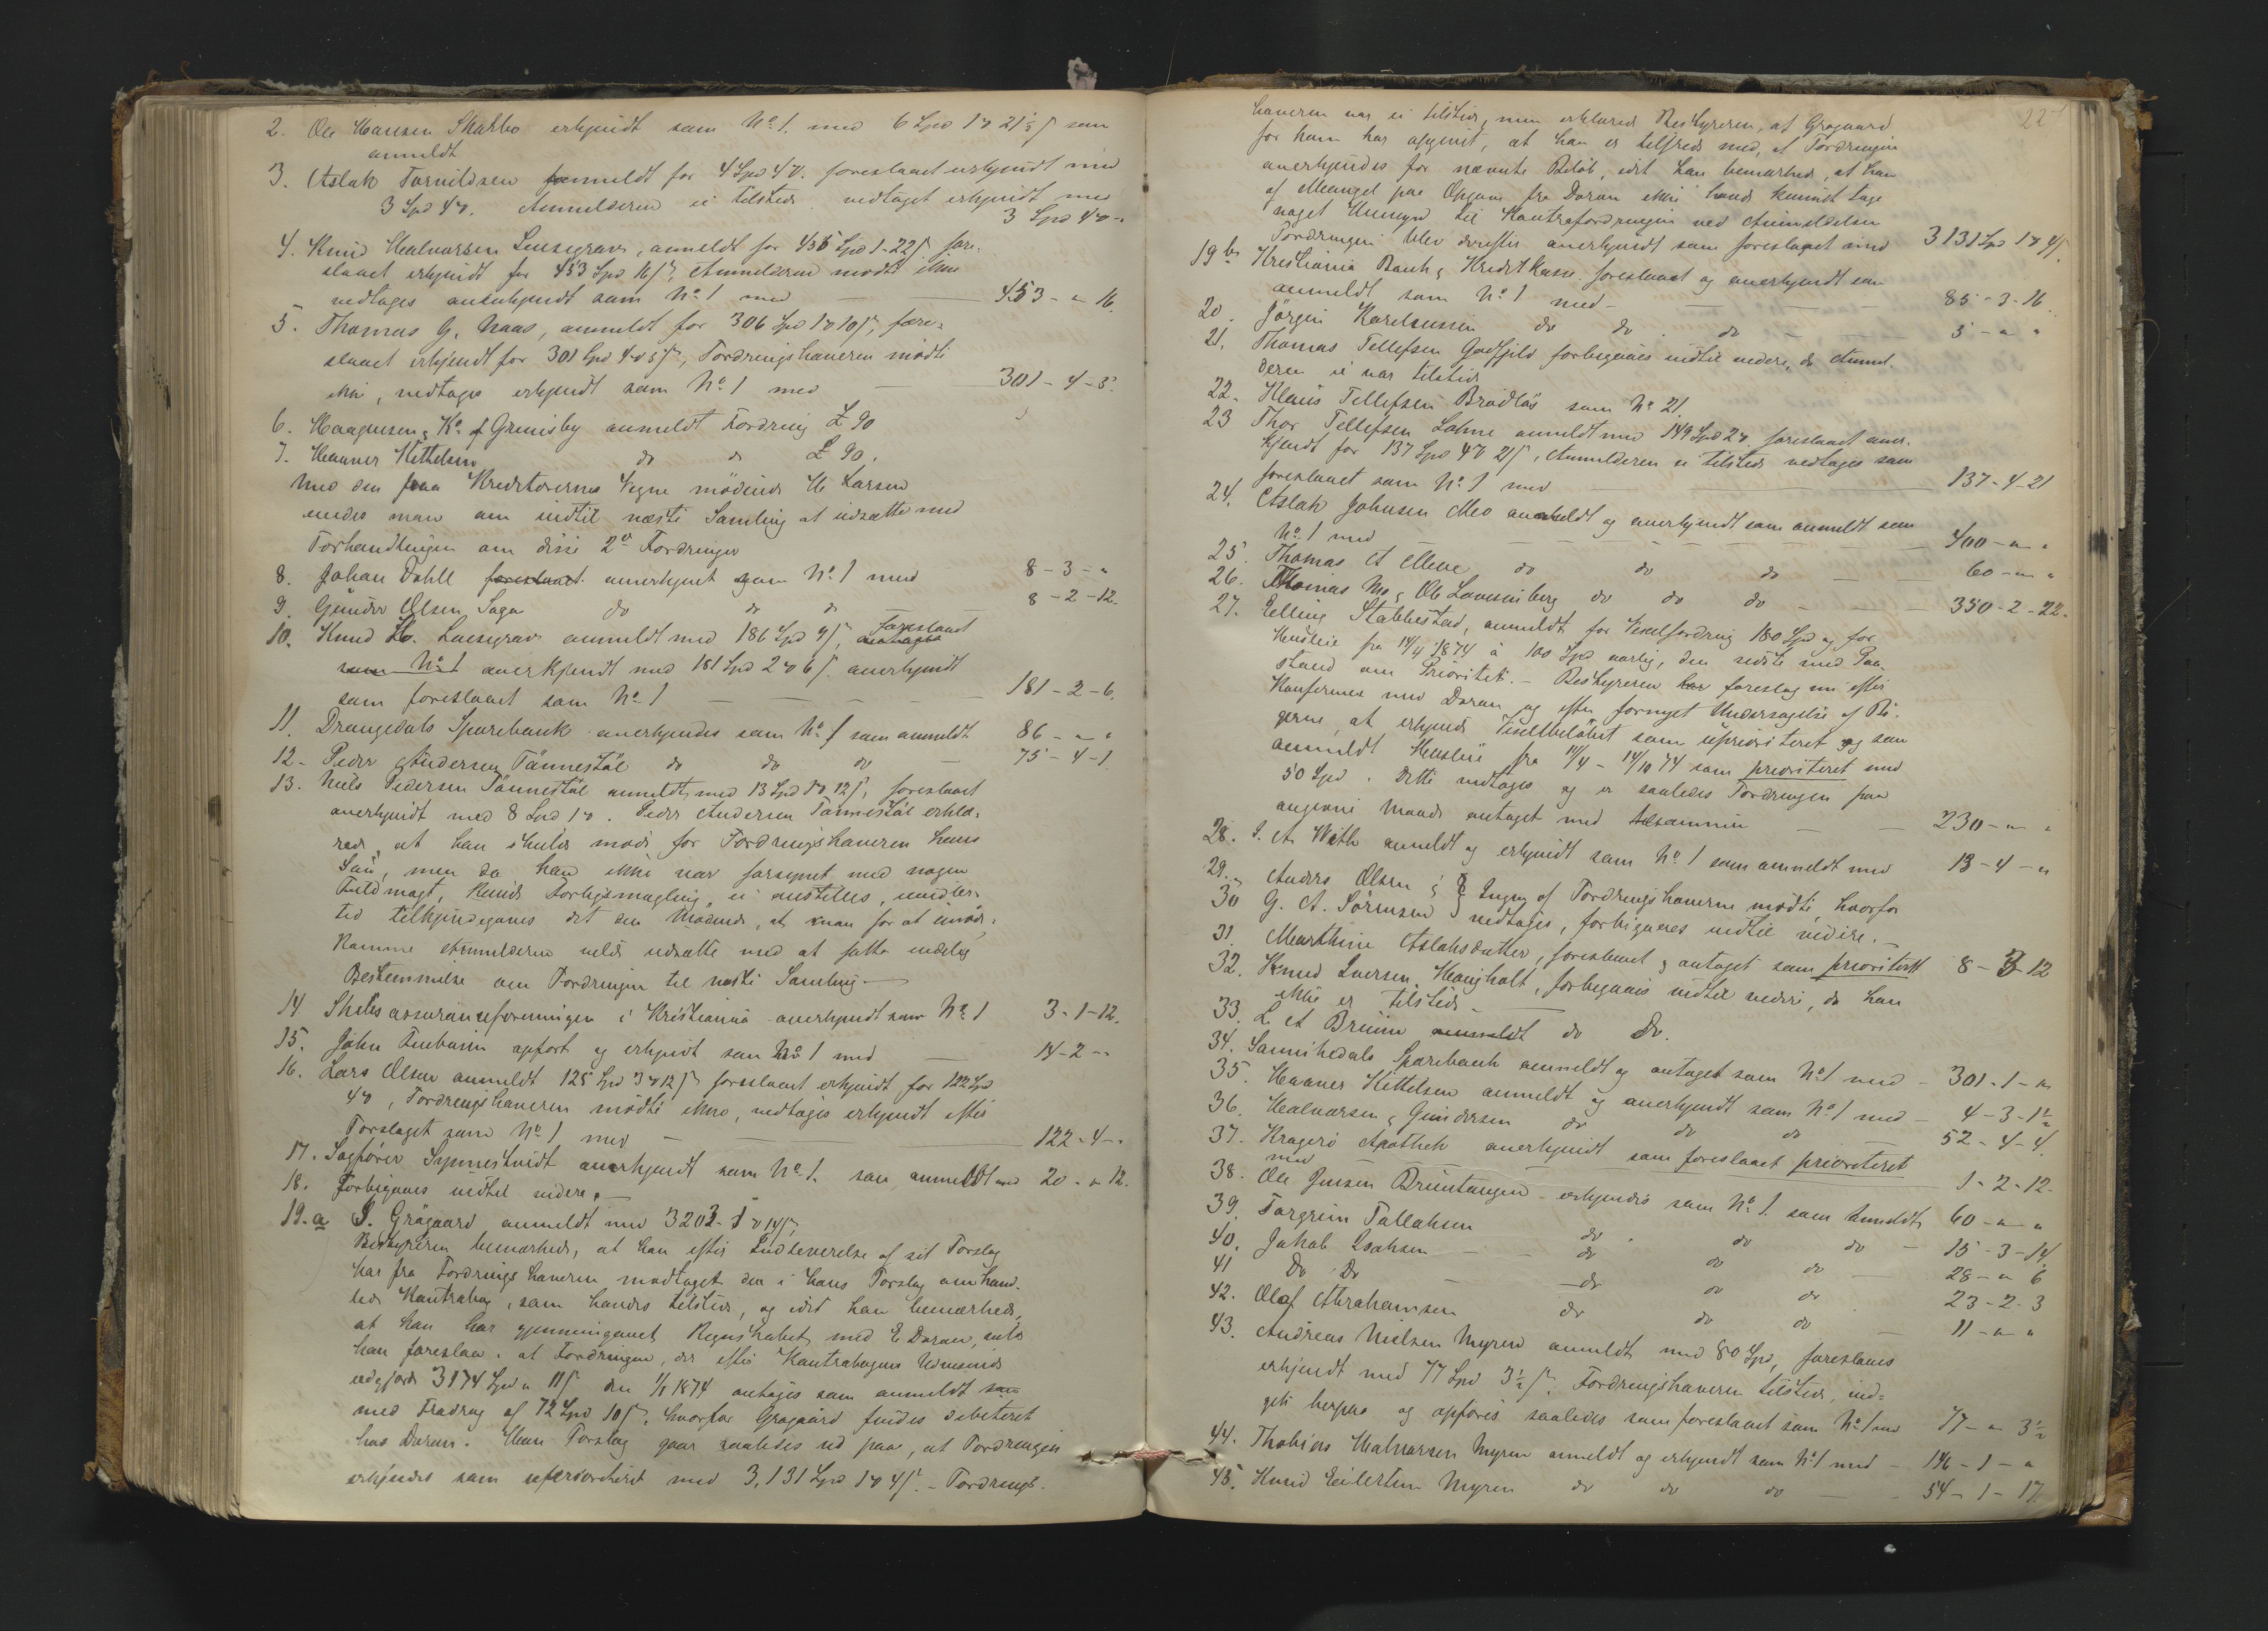 2. Ole Hansen Skarbo erkjendt som No. 1. med 6 Spd 1 ort 21½ ß som
anmeldt
3. Aslak Tarvildsen anmeldt for 4 Spd 4 ort. foreslaaet erkjendt med
3 Spd 4 ort. Anmelderen ei tilstede vedtaget erkjendt med
3 Spd 4 ort -"
4. Knud Halvorsen Lusegrav, anmeldt for 455 Spd 1-22 ß fore-
slaaet erkjendt for 453 Spd 16 ß, Anmelderen mødte ikke
vedtages anerkjendt som No. 1 med — 453 - " 16.
5. Thomas G. Naas, anmeldt for 306 Spd 1 ort 10 ß, fore=
slaaet erkjendt for 301 Spd 4 ort 5 ß, Fordringshaveren mødte
ikke, vedtages erkjendt som No. 1 med — 301 - 4 - 5.
6. Haagensen & Ko. f Grimsby anmeldt Fordring £ 90
7. Hanner Kittelsen do do £ 90.
Med den paa Kreditorernes Vegne mødende H. Larsen
enedes man om indtil næste Samling at udsætte med
Forhandlingen om disse 2de Fordringer
8. Johan Dahll foreslaaet anerkjent som No. 1 med 8 - 3 - "
9. Gunder Olsen Saga do do do 8 - 2 - 12.
10. Knud H. Lusegrav anmeldt med 186 Spd 9 ß, antages foreslaaet
som No. 1 anerkjendt med 181 Spd 2 ort 6 ß. anerkjendt
som foreslaaet som No. 1 — 181 - 2 - 6.
11. Drangedals Sparebank anerkjendes som No. 1 som anmeldt 86 - " "
12 - Peder Andersen Tännestöl do do do — 75 - 4 - 1.
13. Niels Pedersen Tännestöl anmeldt med 13 Spd 1 ort 12 ß, foreslaaet
anerkjendt med 8 Spd 1 ort. Peder Andersen Tännestöl erklæ-
rede, at han skulde møde for Fordringshaveren hans
Søn, men da han ikke var forsynet med nogen
Fuldmagt, kunde Forligsmægling ei anstilles, imidler-
tid tilkjendegaves det den Mødende, at man for at imøde=
komme Anmelderen vilde udsætte med at fatte endelig
Bestemmelse om Fordringen til næste Samling —
14 Skibsassuranceforeningen i Kristiania anerkjendt som No. 1 3 - 1 - 12.
15. John opført og erkjendt som No. 1 med — 14 - 2 - "
16. Lars Olsen anmeldt 125 Spd 3 ort 12 ß foreslaaet erkjendt for 122 Spd
4 ort, Fordringshaveren mødte ikke, vedtages erkjendt efter
Forslaget som No. 1 med — 122 - 4 - "
17. Sagfører Synnestvedt anerkjendt som No. 1. som anmeldt med 20 - " 12.
18. Forbigaaes indtil videre. —
19. a S. Grågaard anmeldt med 3203 - 1 ort 14 ß,
Bestyreren bemærkede, at han efter Indleverelse af sit Forslag
har fra Fordringshaveren modtaget den i hans Forslag omhand-
lede Kontrabog, som havdes tilstede, og idet han bemærkede,
at han har gjennemgaaet Regnskabet med E. Doran, vilde
han foreslaa. at Fordringen, der efter Kontrabogens Udvisende
udgjorde 3174 Spd " 11 ß den 1/1 1874 antages som anmeldt
med Fradrag af 72 Spd 10 ß, hvorfor Grågaard findes debiteret
hos Doran. Hans Forslag gaar saaledes ud paa, at Fordringen
erkjendes som uprioriteret med 3,131 Spd 1 ort 4 ß. - Fordrings-
22
haveren var ei tilstede, men erklærede Bestyreren, at Grågaard
for ham har opgivet, at han er tilfreds med, at Fordringen
anerkjendes for nævnte Beløb, idet han bemærkede, at han
af Mangel paa Opgave fra Doran ikke havde kunnet tage
noget Hensyn til Kontrafordringen ved Anmeldelsen
Fordringen blev derefter anerkjendt som foreslaaet med 3131 Spd 1 ort 4 ß.
19 b. Kristiania Bank & Kreditkasse foreslaaet og anerkjendt som
anmeldt som No. 1 med — 85 - 3 - 16.
20. Jörgen Karelsussen do do do — 5 - " "
21. Thomas Tellefsen Godfjeld forbigaaes indtil videre, da Anmel-
deren ei var tilstede
22. Klaus Tellefsen Brödløs som No. 21.
23 Thor Tellefsen Lohne anmeldt med 149 Spd 2 ort. foreslaaet aner-
kjendt for 137 Spd 4 ort 21 ß, Anmelderen ei tilstede vedtages som
foreslaaet som No. 1 med — 137 - 4 - 21
24. Aslak Johnsen Mo anmeldt og anerkjendt som anmeldt som
No. 1 med — 400 - " "
25. Thomas A Moe do do do — 60 - " "
26. Thomas Mo & Ole Lovisenberg do do do — 350 - 2 - 22.
27. Elling Stabbestad, anmeldt for Vexelfordring 180 Spd og for
Husleie fra 14/4 1874 à 100 Spd aarlig, den sidste med Paa-
stand om Prioritet. — Bestyreren har foreslog nu efter
Konference med Doran og efter fornyet Undersøgelse af Bø-
gerne, at erkjende Vexelbeløbet som uprioriteret og som
anmeldt Husleie fra 14/4 - 14/10 74 som prioriteret med
50 Spd. Dette vedtages og er saaledes Fordringen paa
angivne Maade antaget med tilsammen — 230 - " "
28. I. A. With anmeldt og erkjendt som No. 1 som anmeldt med 13 - 4 - "
29. Anders Olsen & } Ingen af Fordringshaverne mødte, hvorfor
30 G. A. Sörensen } vedtages, forbigaaes indtil videre. —
31. Marthine Aslaksdatter, foreslaaet & antaget som prioriteret 8 - 3 - 12
32. Knud Iversen Haugholt, forbigaaes indtil videre, da han
ikke er tilstede —
33. L. A Bruun anmeldt do Do.
34. Sannikedals Sparebank anmeldt og antaget som No. 1 med — 301 - 1 - "
35. Hanner Kittelsen anmeldt og anerkjendt som No. 1 med — 4 - 3 - 1½
36. Halvorsen & Gundersen do do do — 52 - 4 - 4.
37. Kragerö Apothek anerkjendt som foreslaaet prioriteret
med — 1 - 2 - 12.
38. Ole Jensen Bruntangen erkjendes som No. 1. som anmeldt 60 - " "
39. Torgrim Tallaksen do do do — 15 - 3 - 14.
40. Jakob Isaksen — do do do — 28 - " 6
41 Do Do — do do do 23 - 2 - 3
42. Olaf Abrahamsen do do do — 11 - " "
43. Andreas Nielsen Myren anmeldt med 80 Spd, foreslaaes
erkjendt med 77 Spd 3½ ß. Fordringshaveren tilstede, ind=
gik herpaa og opføres saaledes som foreslaaet som No. 1 med 77 - " 3½
44. Thobias Halvorsen Myren anmeldt og erkjendt som No. 1 med — 146 - 1 - "
45. Knud Eilertsen Myren do do do — 54 - 1 - 17.